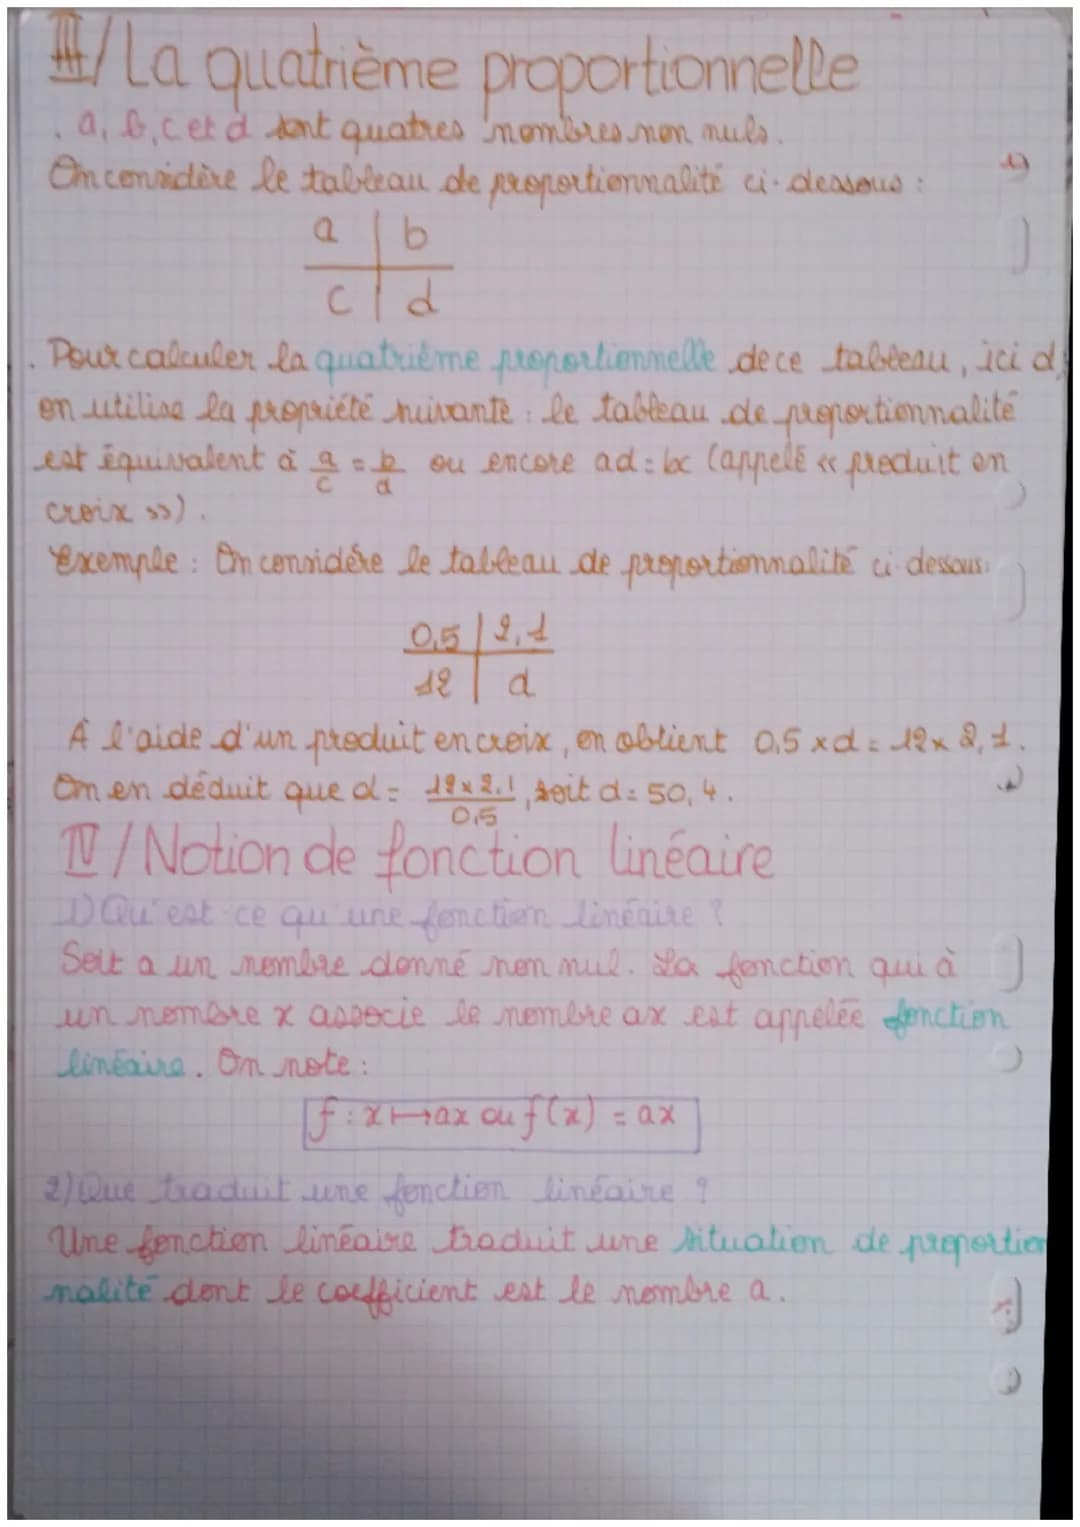 III/ La quatrième proportionnelle
. a, b, c et d sont quatres nombres non nuls.
On considère le tableau de proportionnalité ci-dessous :
a | b
c | d
. Pour calculer la quatrième proportionnelle de ce tableau, ici d,
on utilise la propriété suivante : le tableau de proportionnalité
est équivalent à a/c = b/d ou encore ad = bc (appelé « produit en
croix »).
Exemple : On considère le tableau de proportionnalité ci-dessous:
0,5 | 2,1
12 | d
À l'aide d'un produit en croix, on obtient 0,5 x d = 12 x 2,1.
On en déduit que d = 12 x 2,1/0,5, soit d = 50,4.
IV/ Notion de fonction linéaire
1) Qu'est-ce qu'une fonction linéaire ?
Soit a un nombre donné non nul. La fonction qui à
un nombre x associe le nombre ax est appelée fonction
linéaire. On note :
f : x ↦ ax ou f(x) = ax
2) Que traduit une fonction linéaire ?
Une fonction linéaire traduit une situation de proportion
nalité dont le coefficient est le nombre a.